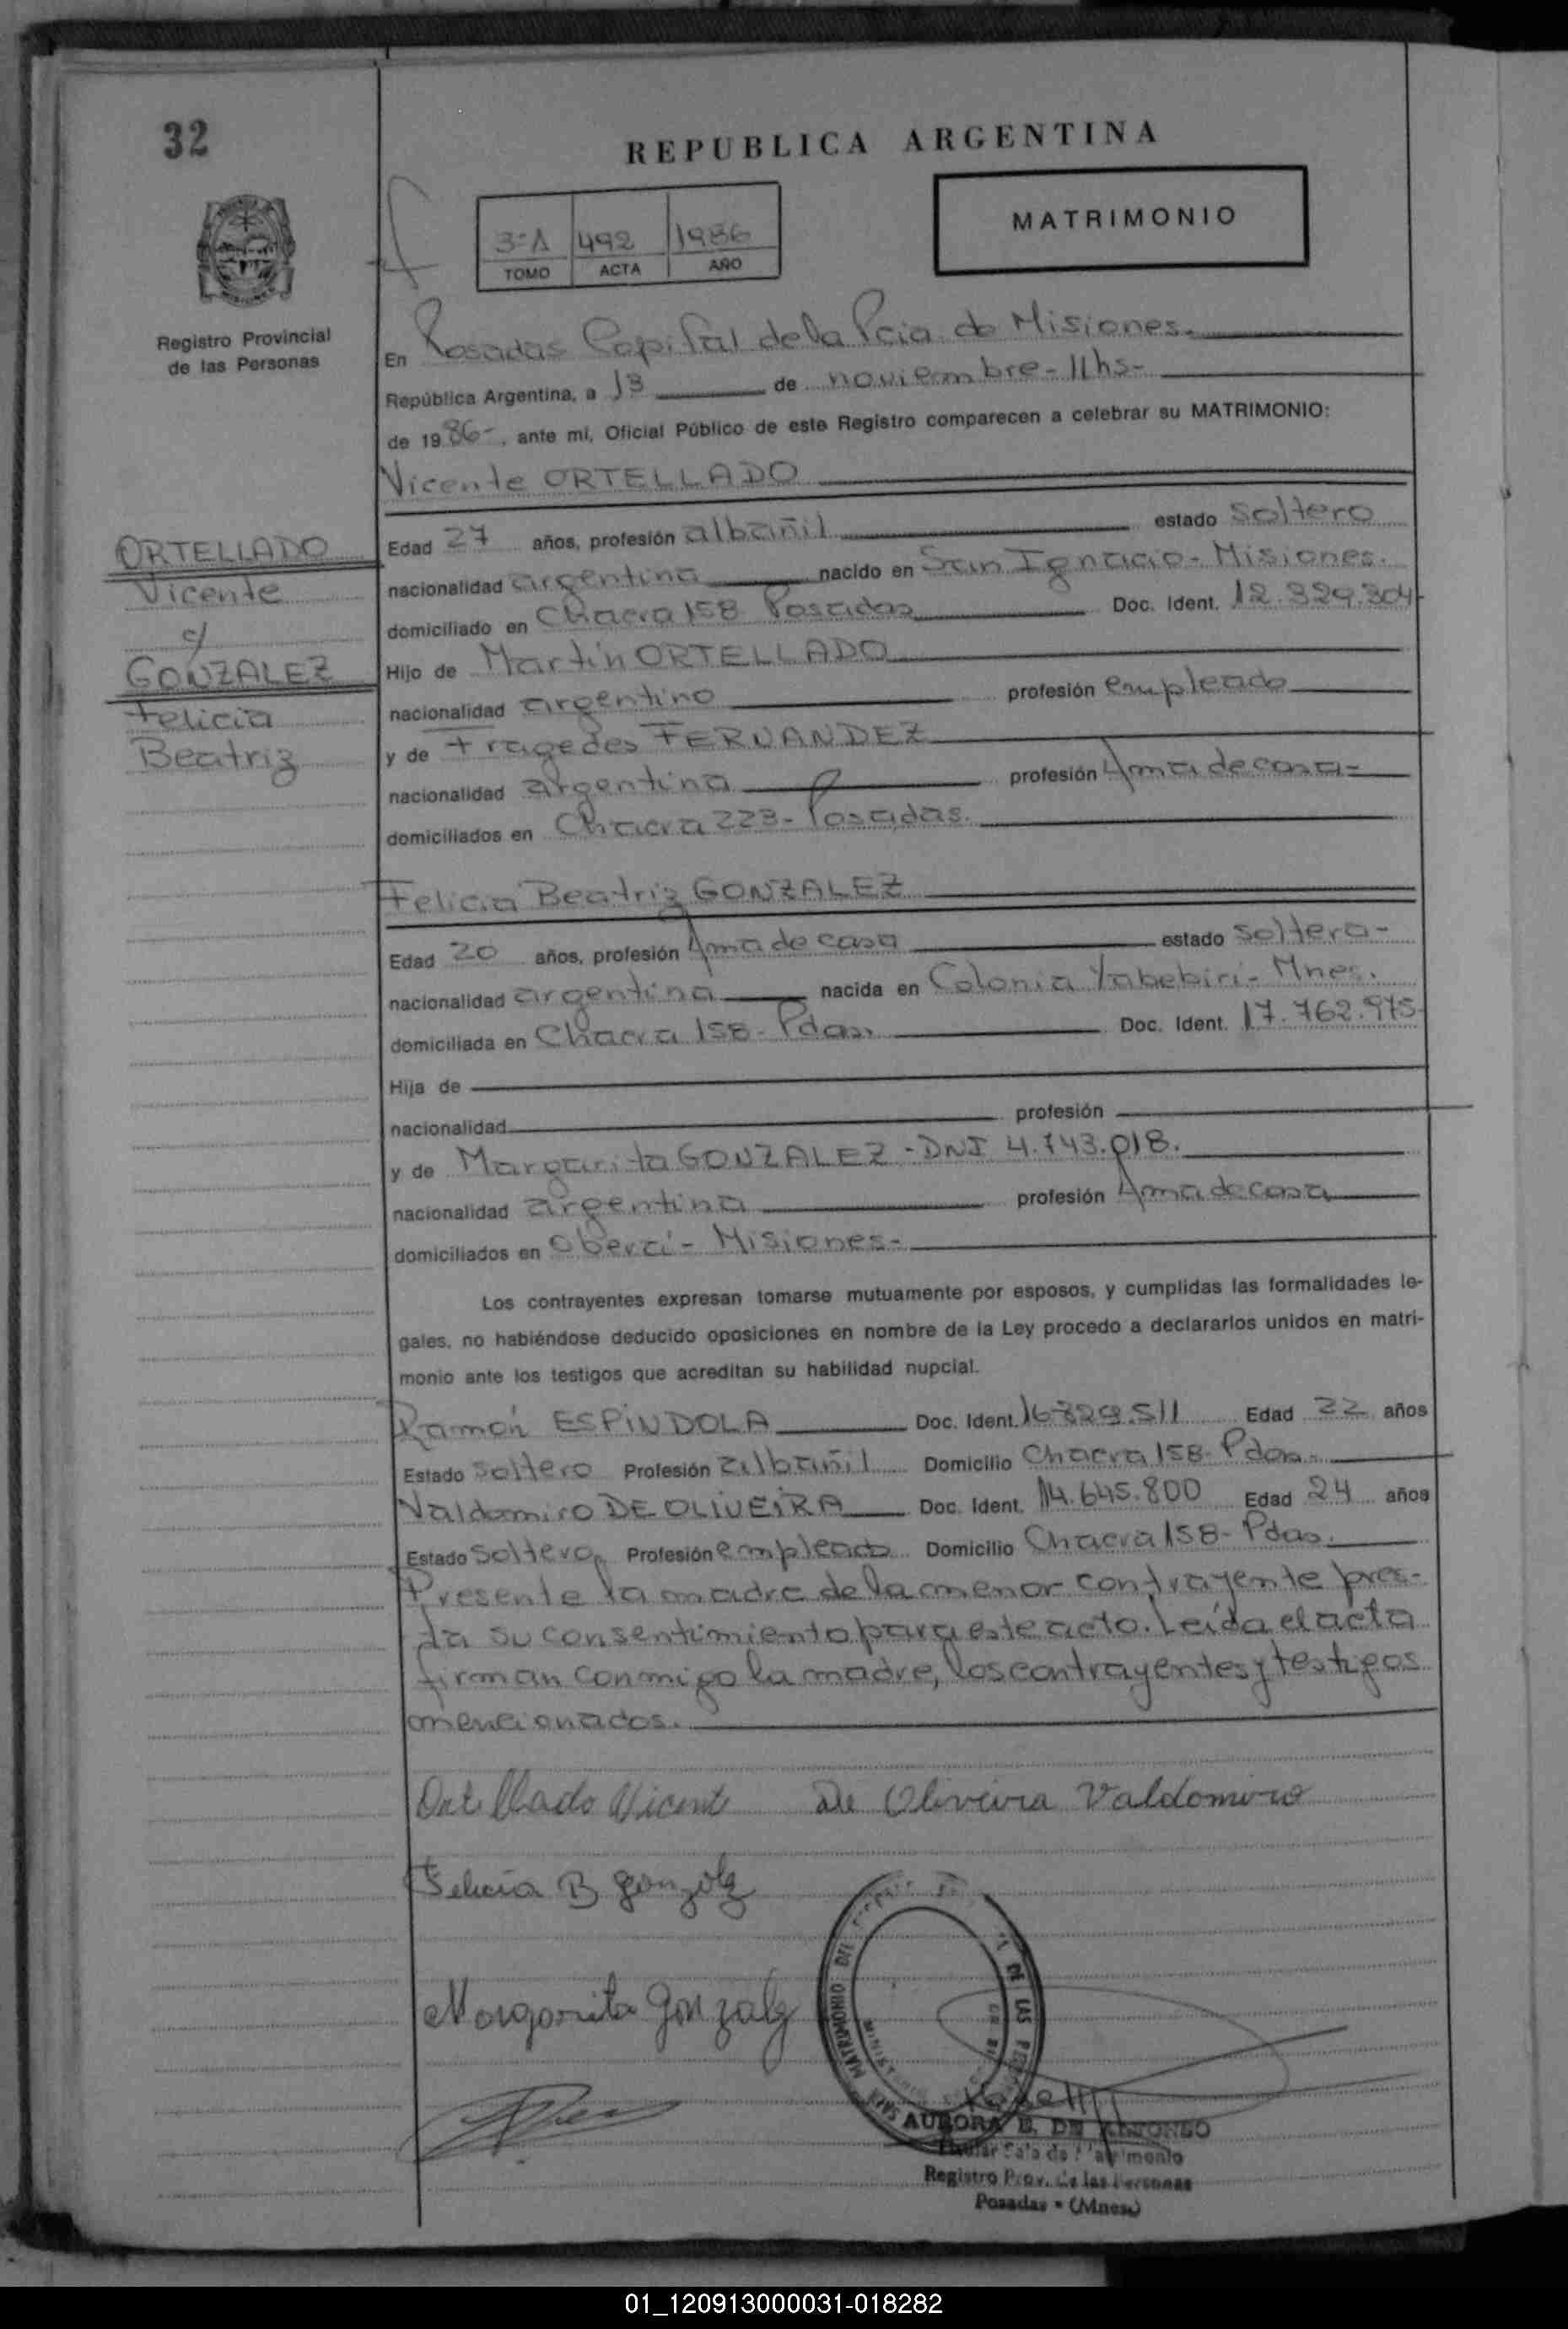 32
REPUBLICA ARGENTINA
MATRIMONIO
3º A 492 1986
TOMO ACTA AÑO
Registro Provincial
de las Personas
En Posadas Capital de la Pcia. de Misiones.
República Argentina, a 13 de noviembre - 11 hs -
de 1986-, ante mi, Oficial Público de este Registro comparecen a celebrar su MATRIMONIO:
Vicente ORTELLADO
ORTELLADO
Vicente
c/
GONZALEZ
Felicia
Beatriz
Edad 27 años, profesión albañil estado soltero
nacionalidad argentina nacido en San Ignacio - Misiones.
domiciliado en Chacra 158 Posadas Doc. Ident. 12.329.304
Hijo de Martín ORTELLADO
nacionalidad argentino profesión empleado
y de Fragedes FERNANDEZ
nacionalidad argentina profesión Ama de casa-
domiciliados en Chacra 223 - Posadas.
Felicia Beatriz GONZALEZ
Edad 20 años, profesión Ama de casa estado soltera -
nacionalidad argentina nacida en Colonia Yabebirí - Mnes.
domiciliada en Chacra 158 - Pdas. Doc. Ident. 17.762.975
Hija de
nacionalidad profesión
y de Margarita GONZALEZ - DNI 4.743.018.
nacionalidad argentina profesión Ama de casa
domiciliados en Oberá - Misiones -
Los contrayentes expresan tomarse mutuamente por esposos, y cumplidas las formalidades le-
gales, no habiéndose deducido oposiciones en nombre de la Ley procedo a declararlos unidos en matri-
monio ante los testigos que acreditan su habilidad nupcial.
Ramón ESPÍNDOLA Doc. Ident. 16.829.511 Edad 22 años
Estado soltero Profesión albañil Domicilio Chacra 158 - Pdas.
Valdomiro DE OLIVEIRA Doc. Ident. 14.645.800 Edad 24 años
Estado soltero Profesión empleado Domicilio Chacra 158 - Pdas.
Presente la madre de la menor contrayente pres-
ta su consentimiento para este acto. Leída el acta
firman conmigo la madre, los contrayentes y testigos
mencionados.
Ortellado Vicente De Oliveira Valdomiro
Felicia B Gonzalez
Margarita Gonzalez
MATRIMONIO DE LAS
AURORA B. DE ALFONSO
Titular Sala de Matrimonio
Registro Prov. de las Personas
Posadas - (Mnes.)
01_120913000031-018282